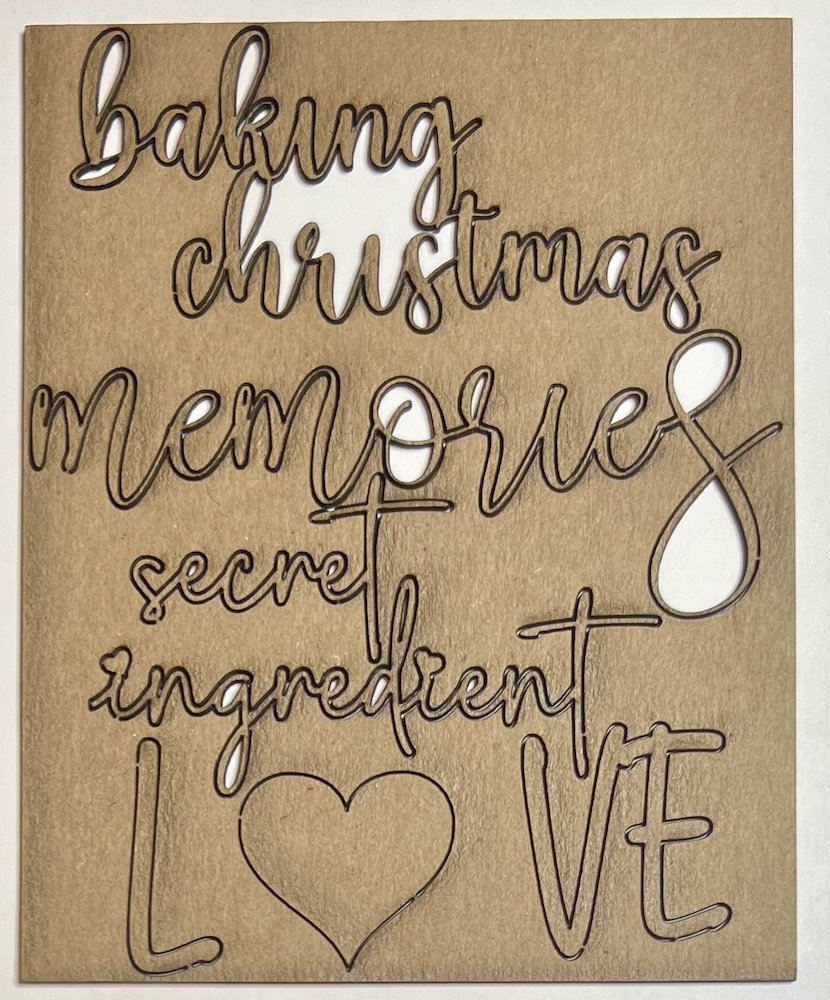 baking
christmas
memories
secret
ingredient
L♥VE